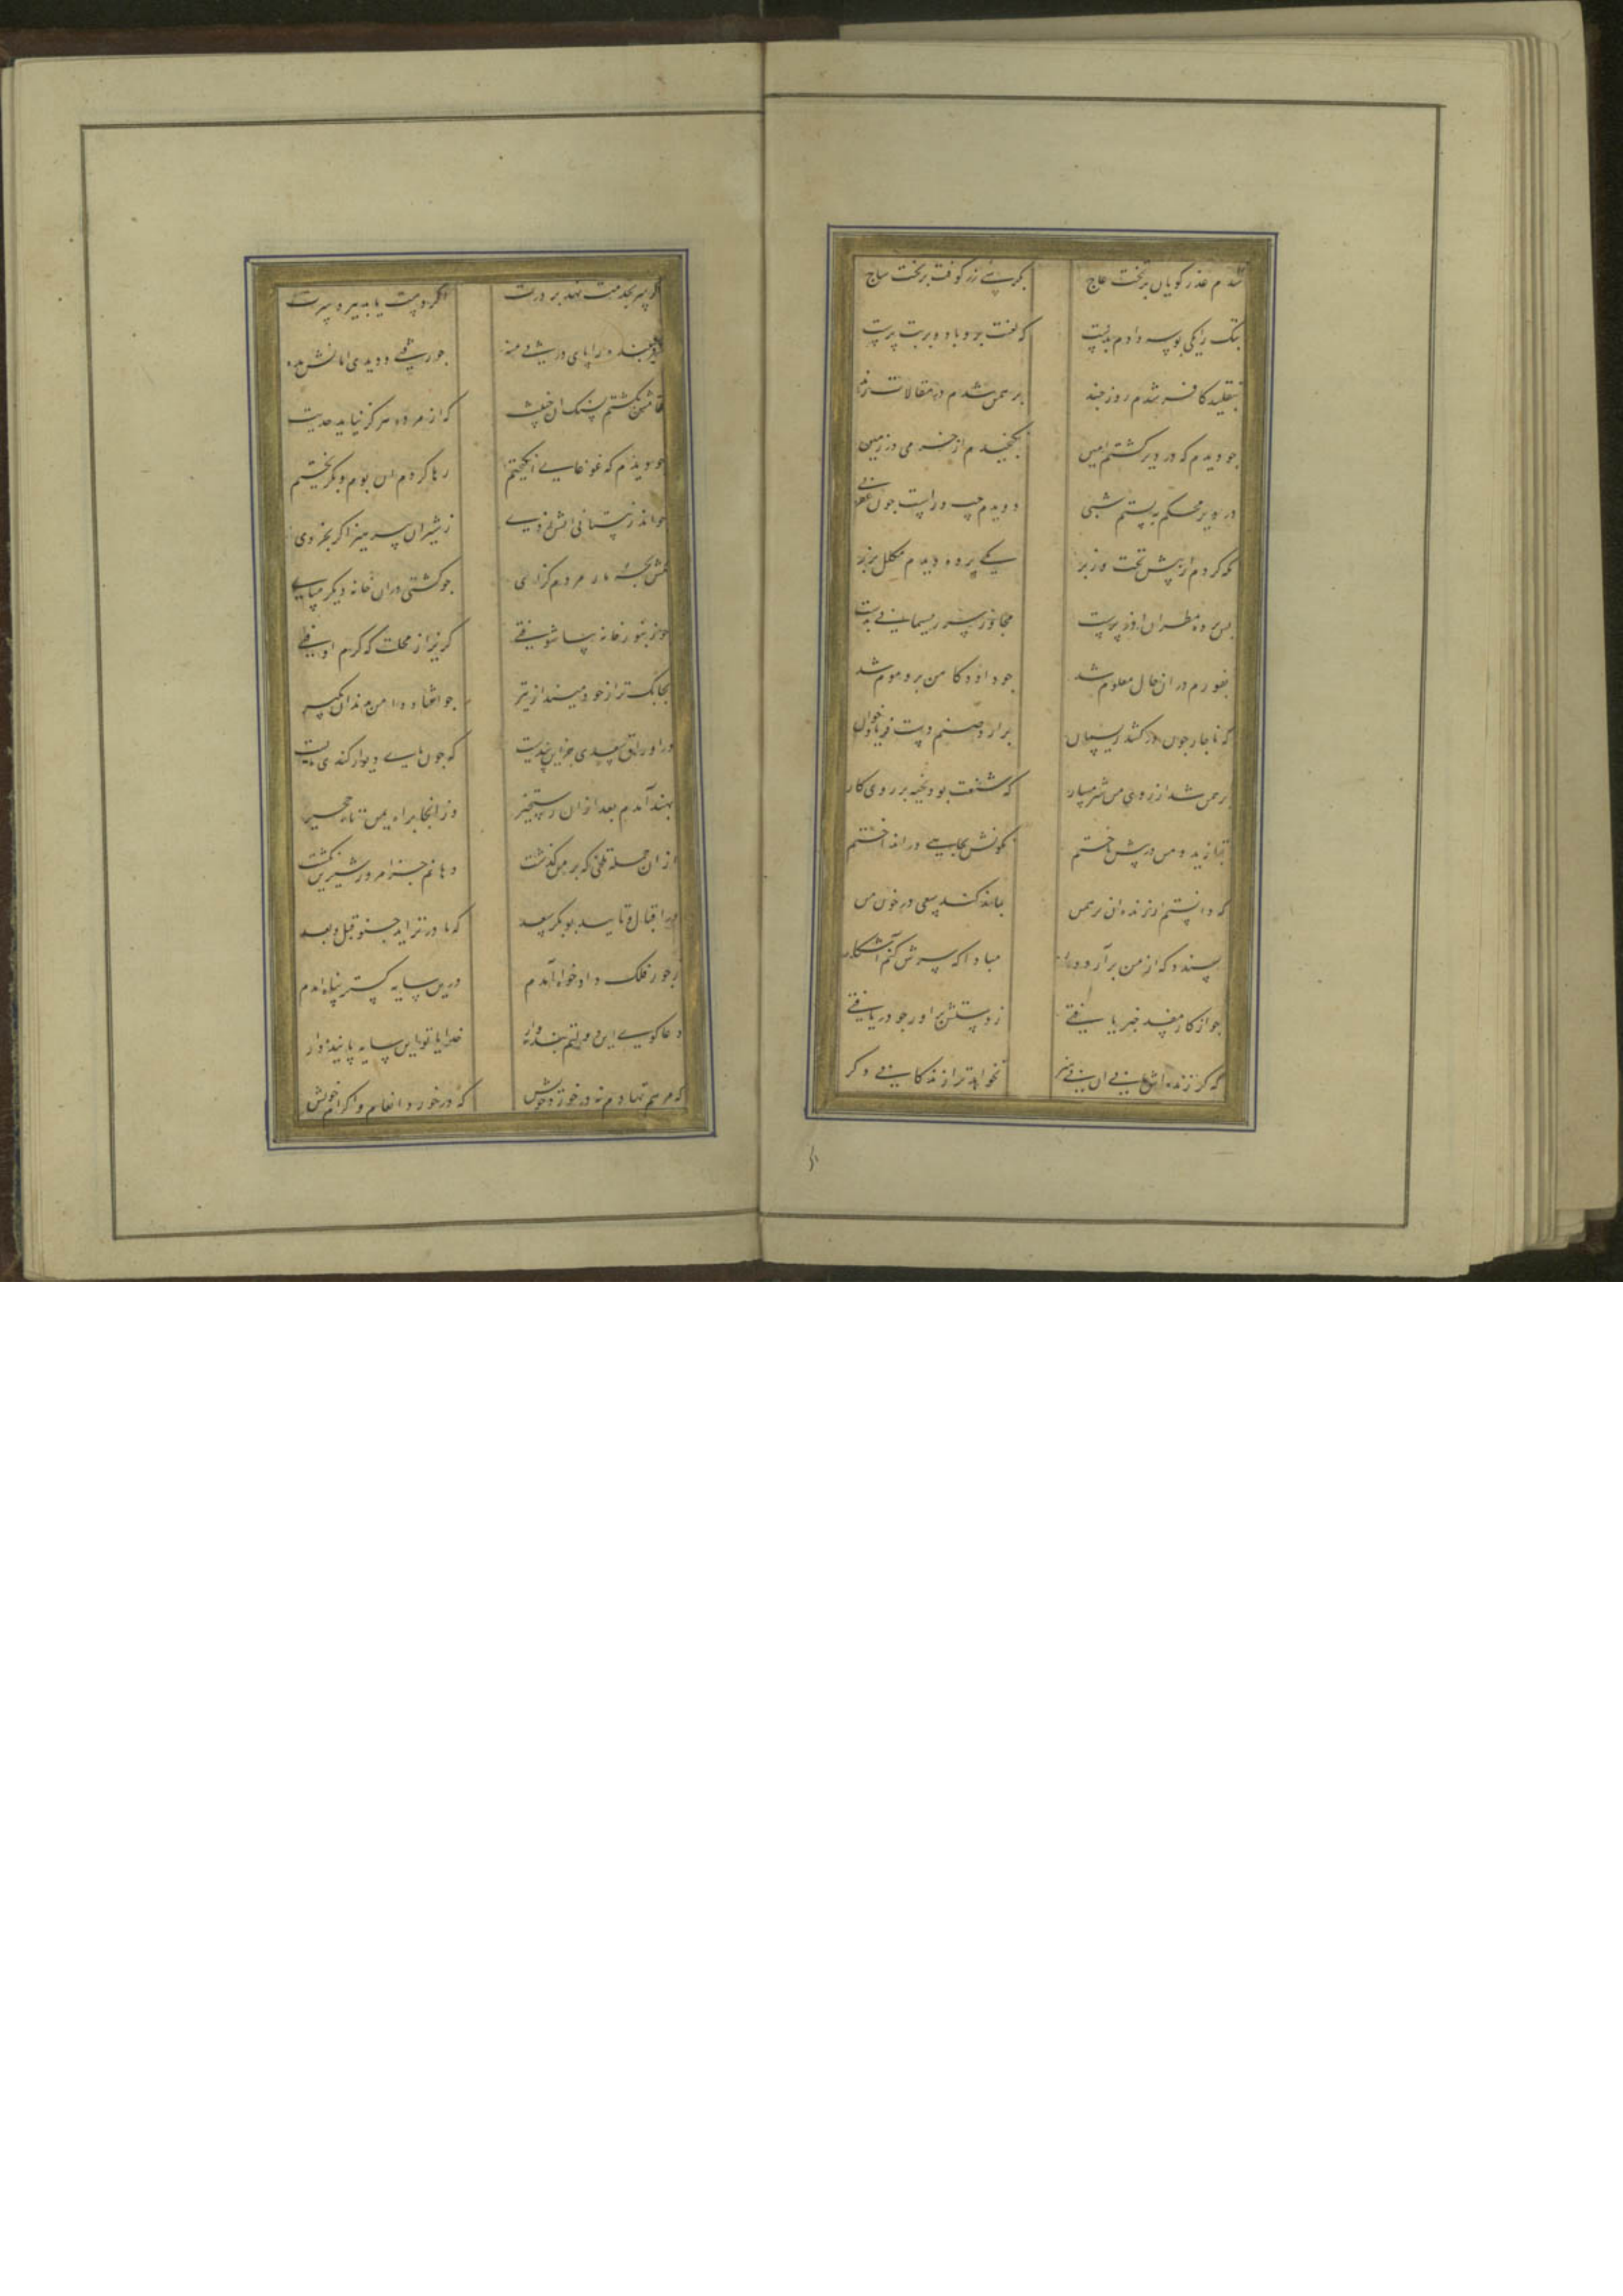 شدم عذرگویان بر تخت عاج بکرسی زر کوفت بر تخت ساج
بتک را یکی بوسه دادم بدست که لعنت برو باد و بر بت پرست
بتقلید کافر شدم روز چند برهمن شدم در مقالات زند
چو دیدم که در دیر گشتم امین نگنجیدم از خرمی در زمین
در دیر محکم ببستم شبی دویدم چپ و راست چون عقربی
نگه کردم از پیش تخت و زبر یکی پرده دیدم مکلل بزر
پس پرده مطران آذر پرست مجاور سر ریسمانی بدست
بفورم در آن حال معلوم شد چو داود کاهن برو موم شد
که ناچار چون در کشد ریسمان برآرد صنم دست فریادخوان
برهمن شد از روی من شرمسار که شنعت بود بخیه بر روی کار
بتازید و من در پیش تاختم نگونش بچاهی در انداختم
که دانستم ار زنده آن برهمن بماند کند سعی در خون من
پسندد که از من برآرد دمار مبادا که سرش کنم آشکار
چو از کار مفسد خبر یافتی ز دستش برآور چو دریافتی
که گر زنده‌اش مانی آن بی‌هنر نخواهد ترا زندگانی دگر
وگر سر بخدمت نهد بر درت اگر دست یابد ببرد سرت
فریبنده را پای در پی منه چو رفتی و دیدی امانش مده
تمامش بکشتم بسنگ آن خبیث که از مرده دیگر نیاید حدیث
چو دیدم که غوغایی انگیختم رها کردم آن بوم و بگریختم
چو اندر نیستانی آتش زدی ز شیران بپرهیز اگر بخردی
مکش بچه مار مردم گزای چو کشتی در آن خانه دیگر مپای
چو زنبورخانه بیاشوفتی گریز از محلت که گرم اوفتی
بچابک تر از خود مینداز تیر چو افتاد دامن بدندان بگیر
در اوراق سعدی جز این پند نیست که چون پای دیوار کندی مایست
بهند آمدم بعد از آن رستخیز وز آنجا براه یمن تا حجیز
از آن جمله تلخی که بر من گذشت دهانم جز امروز شیرین نگشت
در اقبال و تایید بوبکر سعد که مادر نزاید چنو قبل و بعد
ز جور فلک دادخواه آمدم درین سایه گستر پناه آمدم
دعاگوی این دولتم بنده‌وار خدایا تو این سایه پاینده دار
که مرهم نهادم نه در خورد خویش که در خورد انعام و اکرام خویش